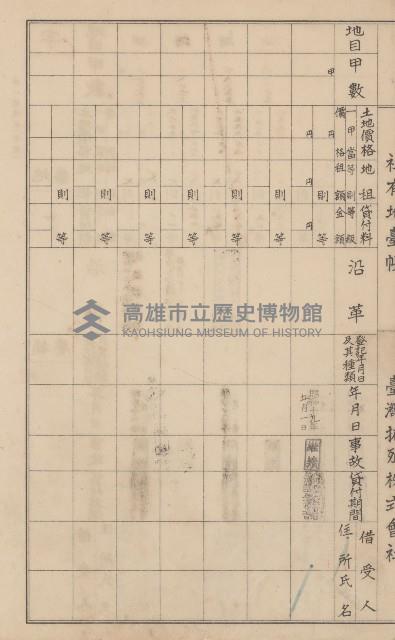 社有地臺帳
臺灣拓殖株式會社
地目
甲數
甲
土地價格
一甲當
價格
円
円
地租
等則
租額
円
円
貸付料
等級
金額
円
則
等
則
等
則
等
則
等
則
等
則
等
則
等
沿革
登記年月日
及其種類
年月日
事故
貸付期間
借受人
住所
氏名
高雄市立歷史博物館
KAOHSIUNG MUSEUM OF HISTORY